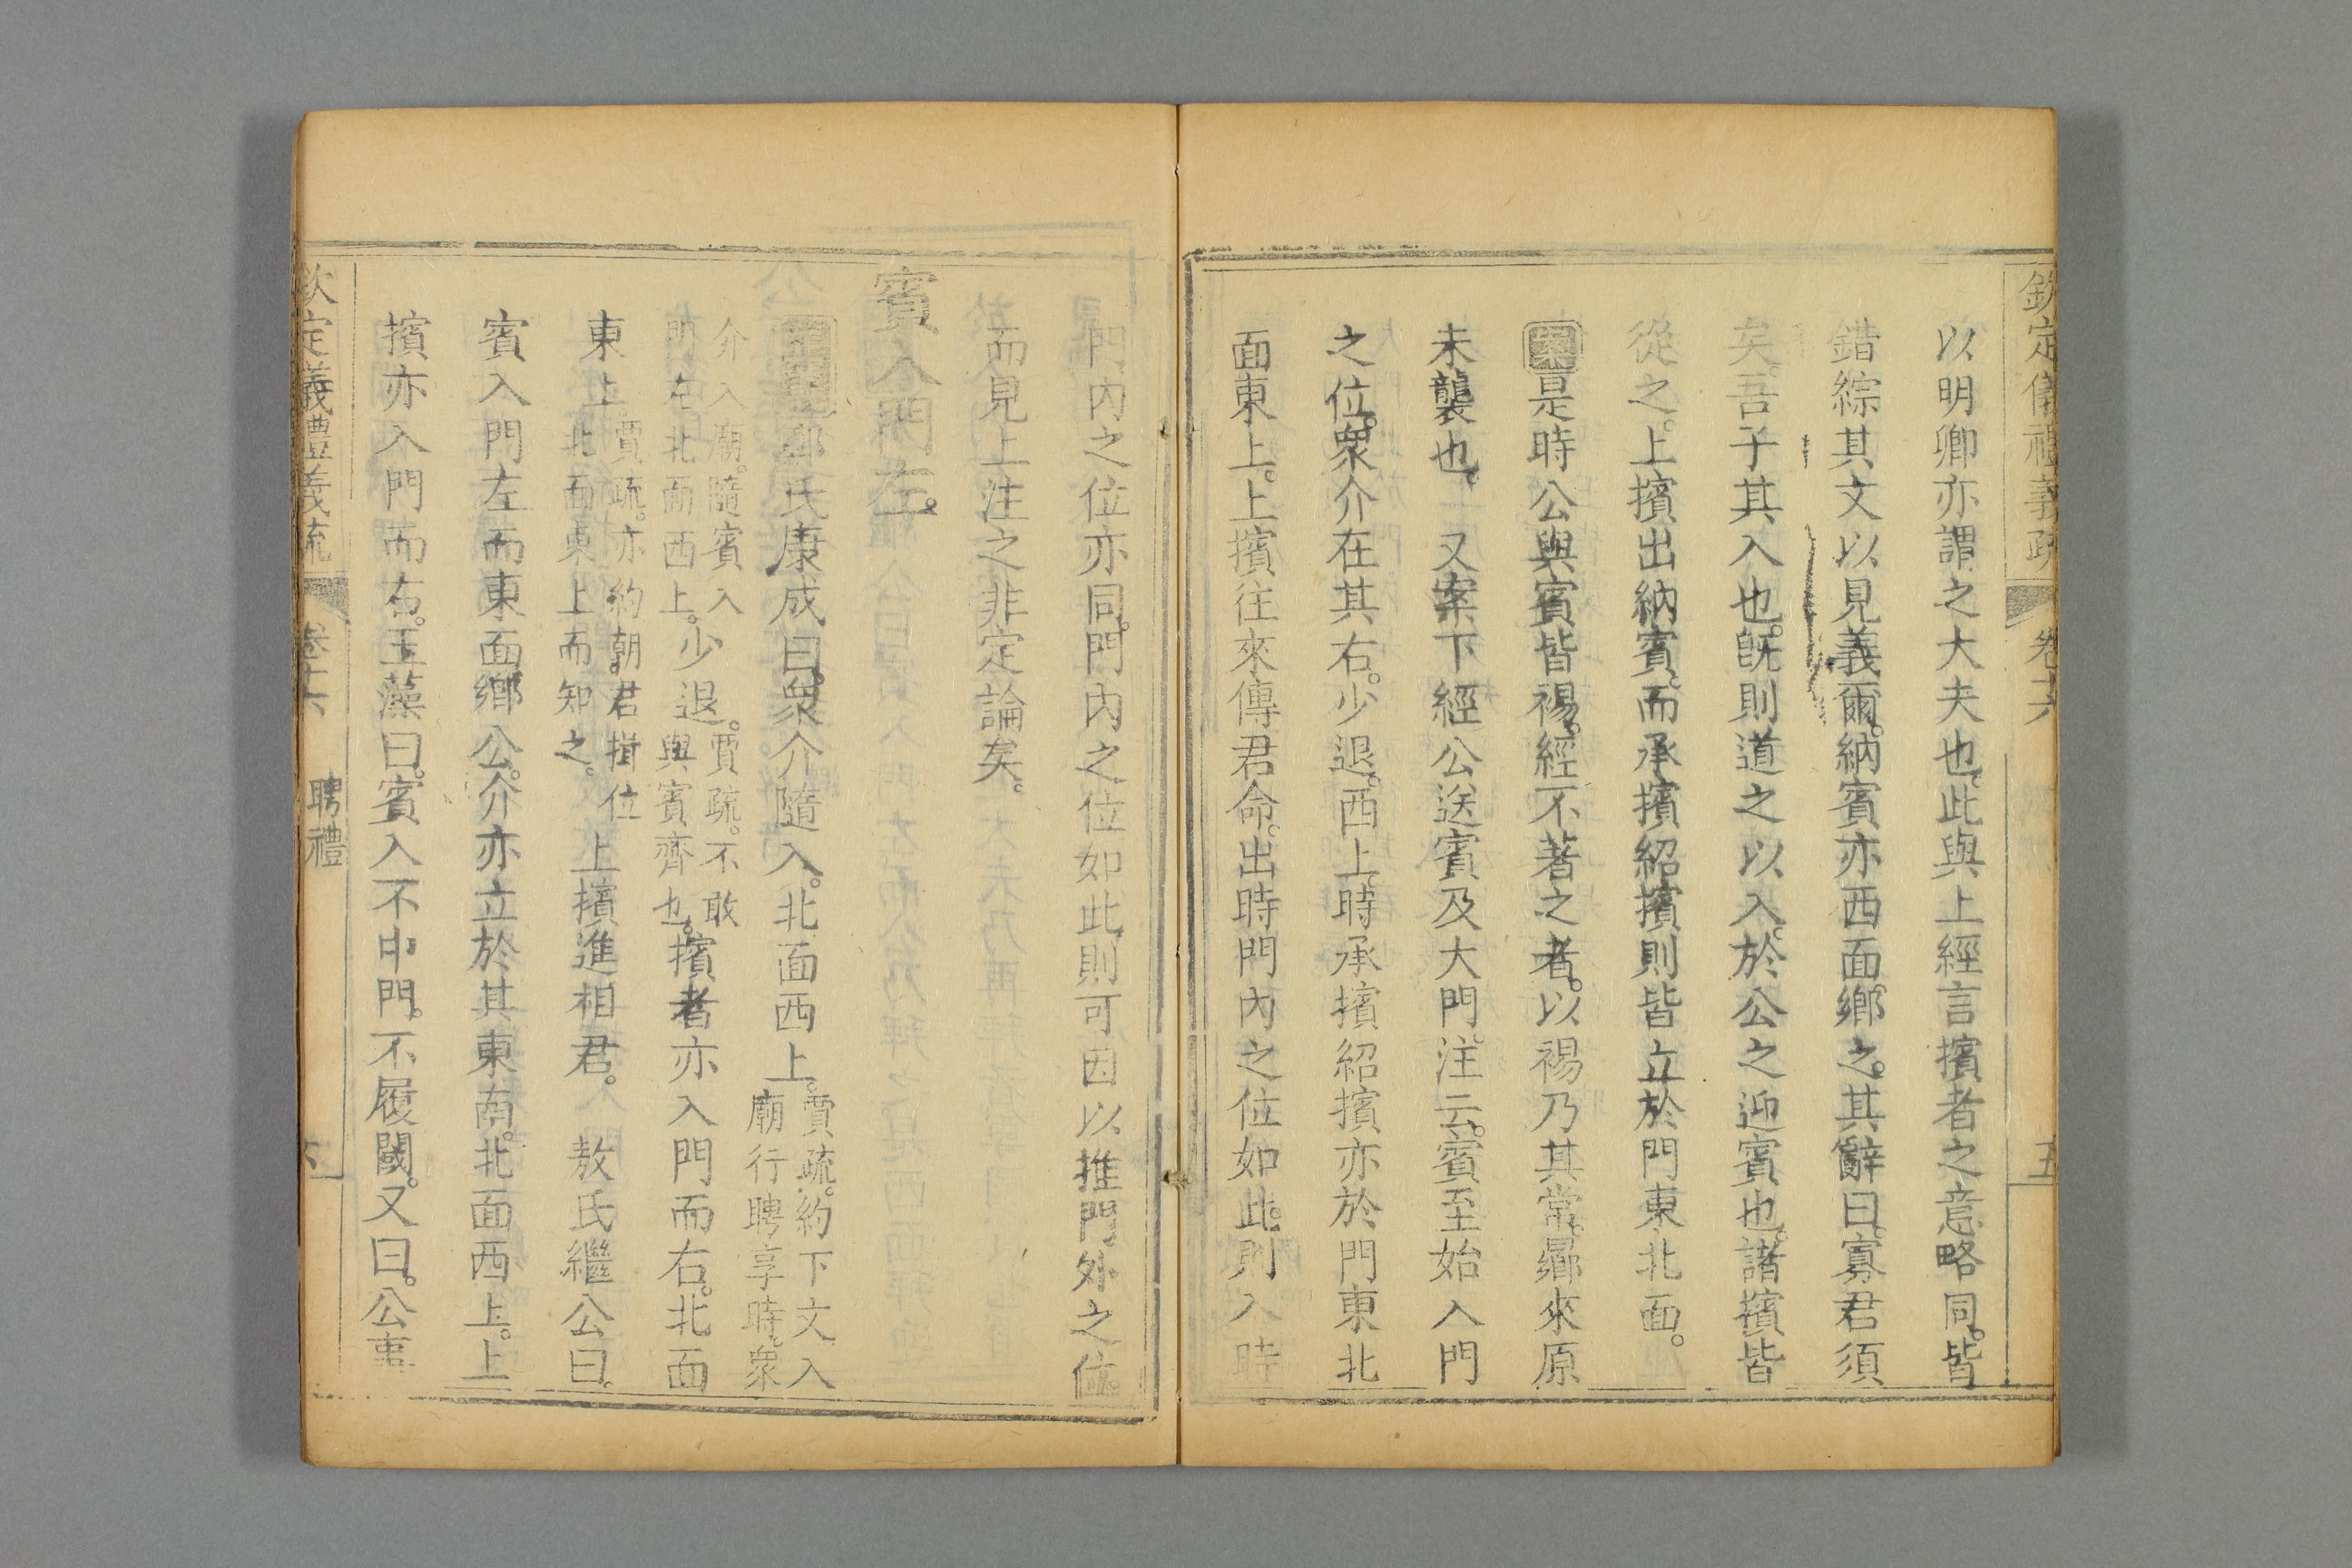 欽定儀禮義疏 卷十六 五
以明卿亦謂之大夫也此與上經言擯者之意略同皆
錯綜其文以見義爾納賓亦西面鄉之其辭曰寡君須
矣吾子其入也旣則道之以入於公之迎賓也諸擯皆
從之上擯出納賓而承擯紹擯則皆立於門東北面
案是時公與賓皆裼經不著之者以裼乃其常曏來原
未襲也 又案下經公送賓及大門注云賓至始入門
之位衆介在其右少退西上時承擯紹擯亦於門東北
面東上上擯往來傳君命出時門內之位如此則入時
門內之位亦同門內之位如此則可因以推門外之位
而見上注之非定論矣
賓入門左
鄭氏康成曰衆介隨入北面西上賈疏約下文入
廟行聘享時衆
介入廟隨賓入
門左北面西上少退賈疏不敢
與賓齊也擯者亦入門而右北面
東上賈疏亦約朝君揖位
北面東上而知之上擯進相君 敖氏繼公曰
賓入門左而東面鄉公介亦立於其東南北面西上上
擯亦入門而右玉藻曰賓入不中門不履閾又曰公事
欽定義禮義疏 卷十六 聘禮 六